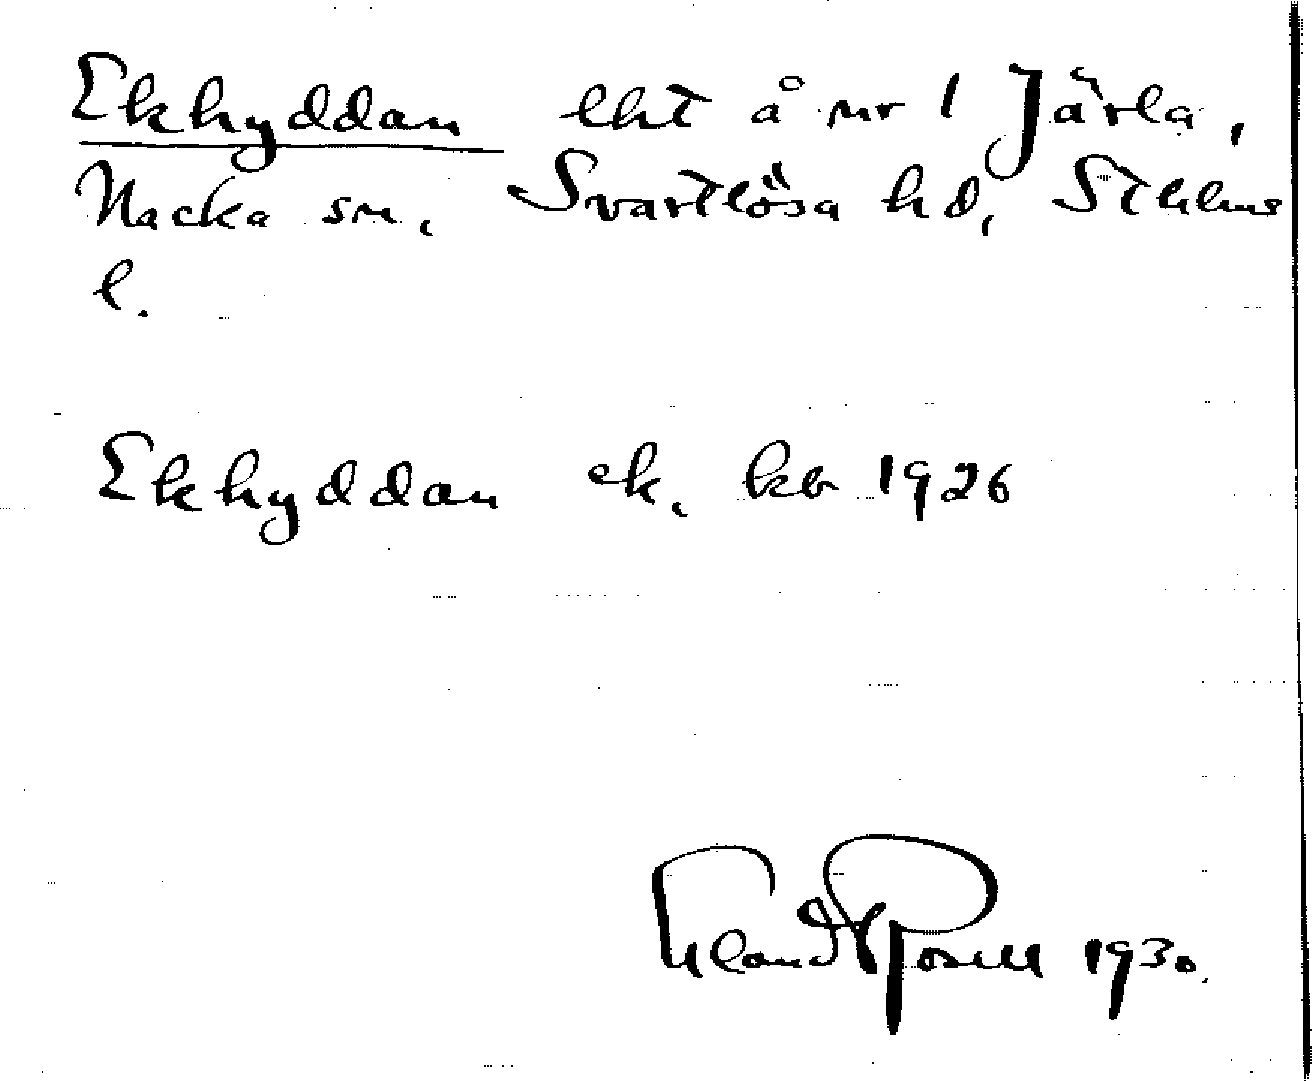 Ekhyddan lht å nr 1 Järla,
Nacka sn, Svartlösa hd, Sthlms
l.
Ekhyddan ek. kb 1926
Erland Rosell 1930.